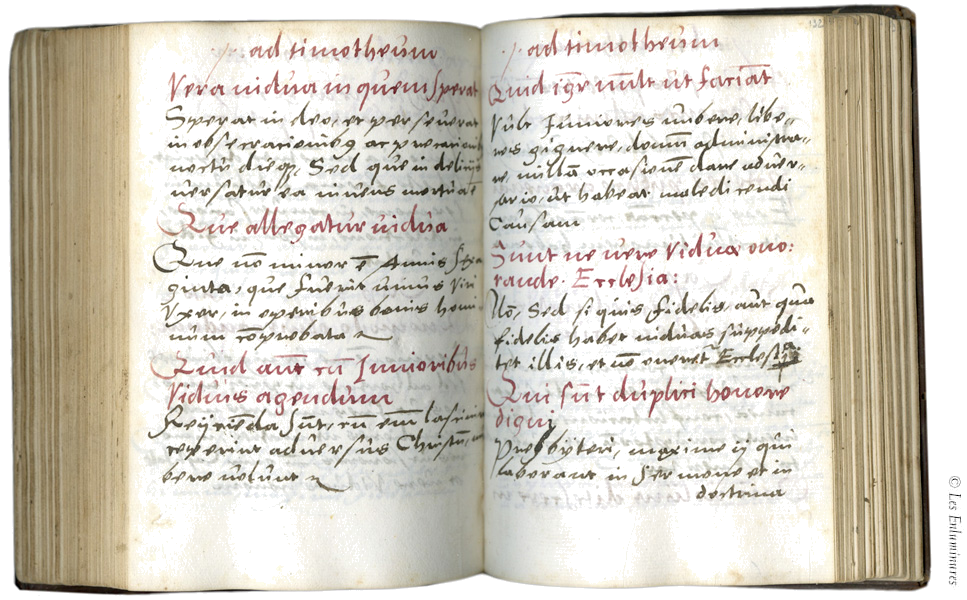 ad timotheum
Vera vidua in quem sperat
Sperat in deo, et perseverat
in obsecrationibq ac precationibq
noctu dieq, Sed que in delitijs
versatur ea vivens mortua ē
Que allegatur vidua
Que nō minor ē Annis Sexa
ginta, que fuerit unius Viri
Vxor, in operibus bonis homi
num cōprobata
Quid autē cū Iunioribus
Viduis agendum
Reijciēda sūnt, cū em̄ lascivire
ceperint adversus Christū,
bere volunt
ad timotheum
Quid igr̄ vult ut faciāt
Vult Iuniores nubere, libe-
ros gignere, domū administra-
re nullā occasionē dare adver-
sario, ut habeat maledicendi
Causam
Sunt ne vere Vidua ono:
rande Ecclesia:
Nō, Sed si quis fidelis, aut qua
fidelis habet viduas suppedi-
tet illis, et nō oneret Ecclesia
Qui sūt duplici honore
digni
Presbyteri, maxime ij qui
laborant in Sermone et in
doctrina
132
© Les Enluminures